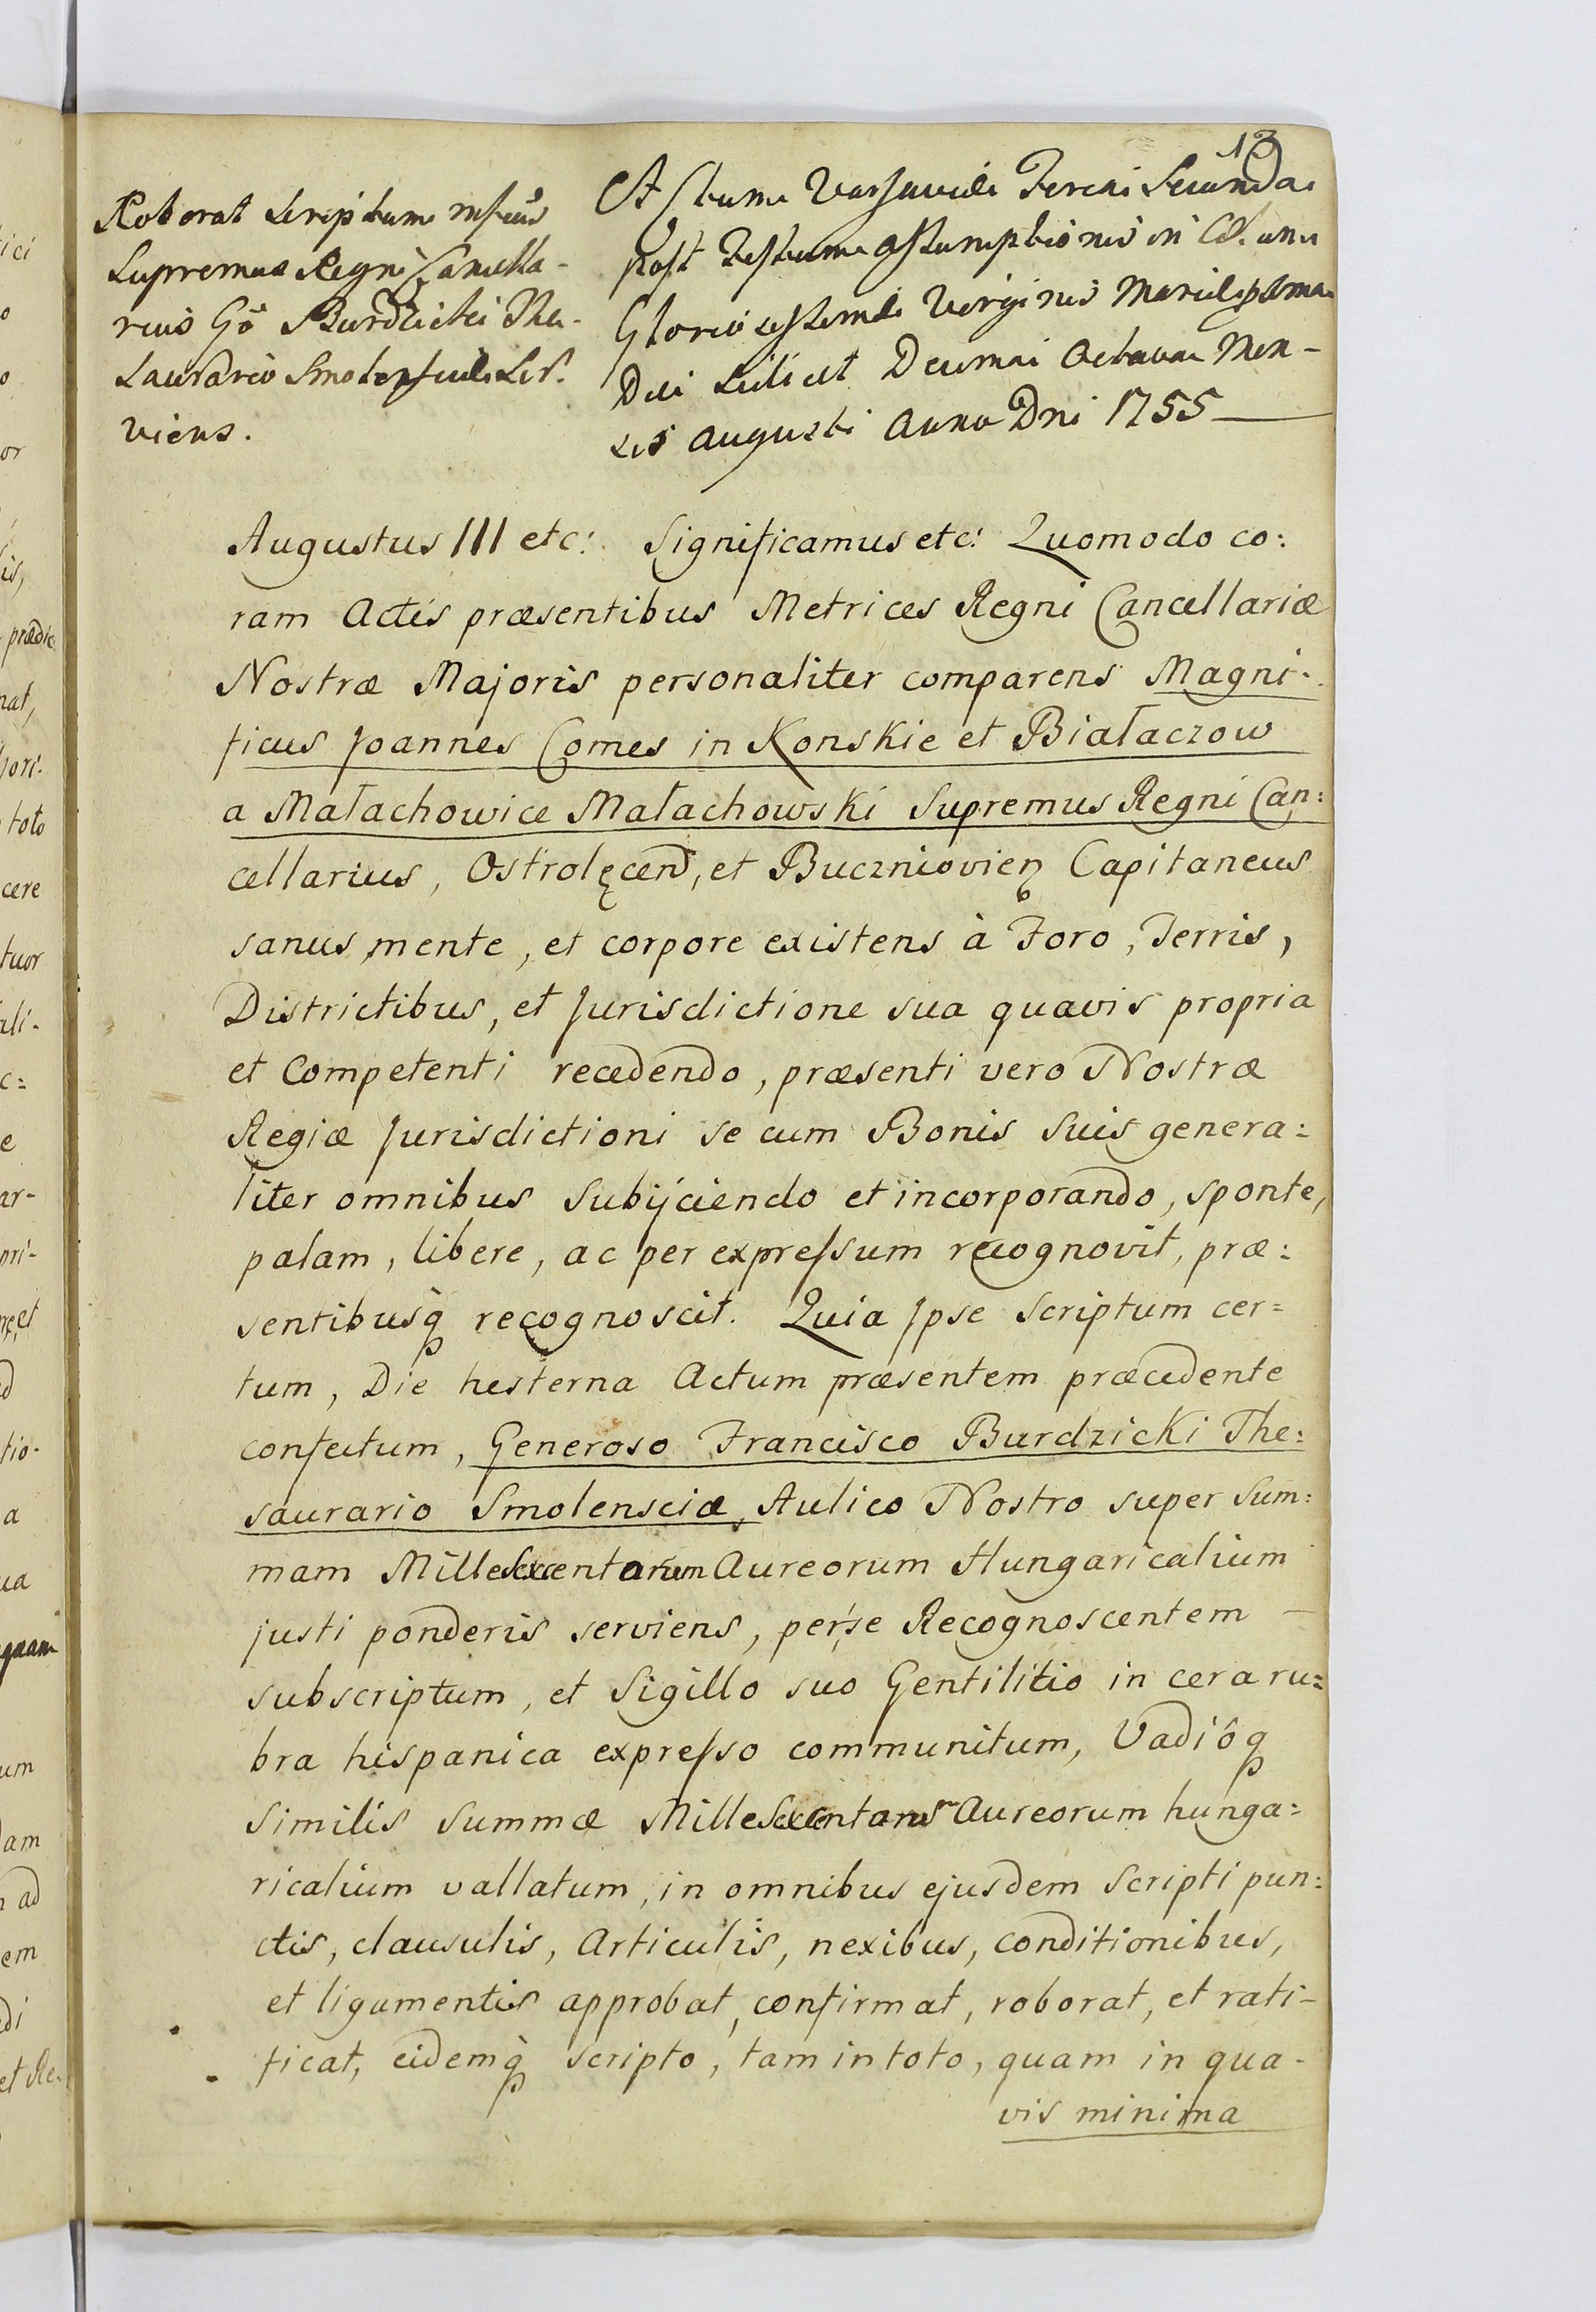 13
Roborat Scriptum Mficus
Supremus Regni Cancella-
rius Gō Burdzicki The-
saurario Smolensciæ Ser-
viens.
Actum Varsaviæ Feria Secunda
post Festum Assumptionis in Cœlum
Gloriosissimæ Virginis Mariæ ipsama
Die Scilicet Decima Octava Men-
sis Augusti Anno Dni 1755
Augustus III etc: Significamus etc: Quomodo co:
ram Actis præsentibus Metrices Regni Cancellariæ
Nostræ Majoris personaliter comparens Magni-
ficus Joannes Comes in Konskie et Białaczow
a Małachowice Małachowski Supremus Regni Can:
cellarius, Ostrolęcen, et Buczniovien Capitaneus
sanus mente, et corpore existens à Foro, Terris,
Districtibus, et Jurisdictione sua quavis propria
et Competenti recedendo, præsenti vero Nostræ
Regiæ Jurisdictioni se cum Bonis Suis genera:
liter omnibus Subijciendo et incorporando, sponte,
palam, libere, ac per expreſsum recognovit, præ:
sentibusq̀ recognoscit. Quia Jpse Scriptum cer=
tum, Die hesterna Actum præsentem præcedente
confectum, Generoso Francisco Burdzicki The:
saurario Smolensciæ, Aulico Nostro super Sum:
mam Mille Sexcentorum Aureorum Hungaricalium
justi ponderis serviens, per se Recognoscentem
subscriptum, et Sigillo suo Gentilitio in cera ru=
bra hispanica expreſso communitum, Vadiôq
Similis Summæ Mille Sexcentorum Aureorum hunga=
ricalium vallatum, in omnibus ejusdem Scripti pun:
ctis, clausulis, Articulis, nexibus, conditionibus,
et ligamentis approbat, confirmat, roborat, et rati-
ficat, eidemq̀ scripto, tam in toto, quam in qua-
vis minima